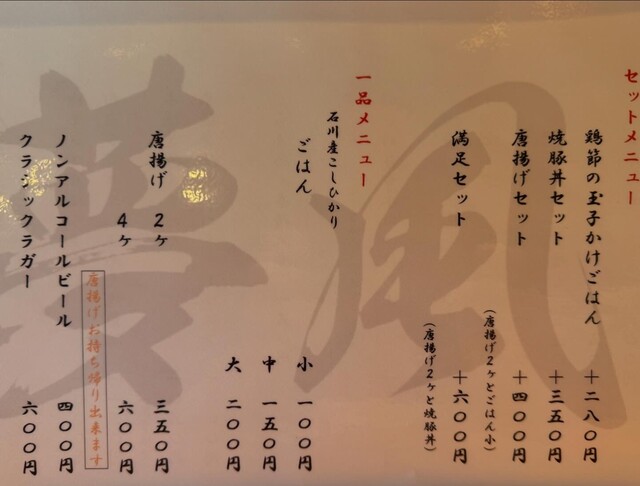 セットメニュー
鶏節の玉子かけごはん ＋二八〇円
焼豚丼セット ＋三五〇円
唐揚げセット ＋四〇〇円
(唐揚げ2ヶとごはん小)
満足セット ＋六〇〇円
(唐揚げ2ヶと焼豚丼)
一品メニュー
石川産こしひかり
ごはん 小 一〇〇円
中 一五〇円
大 二〇〇円
唐揚げ 2ヶ 三五〇円
4ヶ 六〇〇円
唐揚げお持ち帰り出来ます
ノンアルコールビール 四〇〇円
クラシックラガー 六〇〇円
風
夢